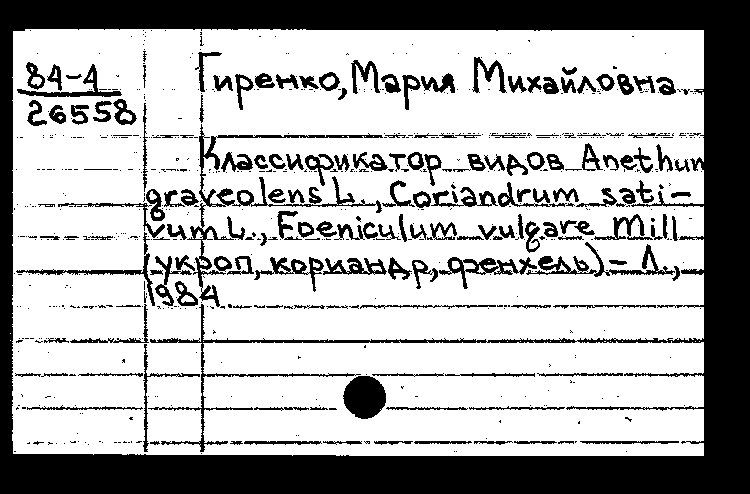 84-4
26558
Гиренко, Мария Михайловна.
Классификатор видов Anethum
graveolens L., Coriandrum sati-
vum L., Foeniculum vulgare Mill
(укроп, кориандр, фенхель) - Л.,
1984.